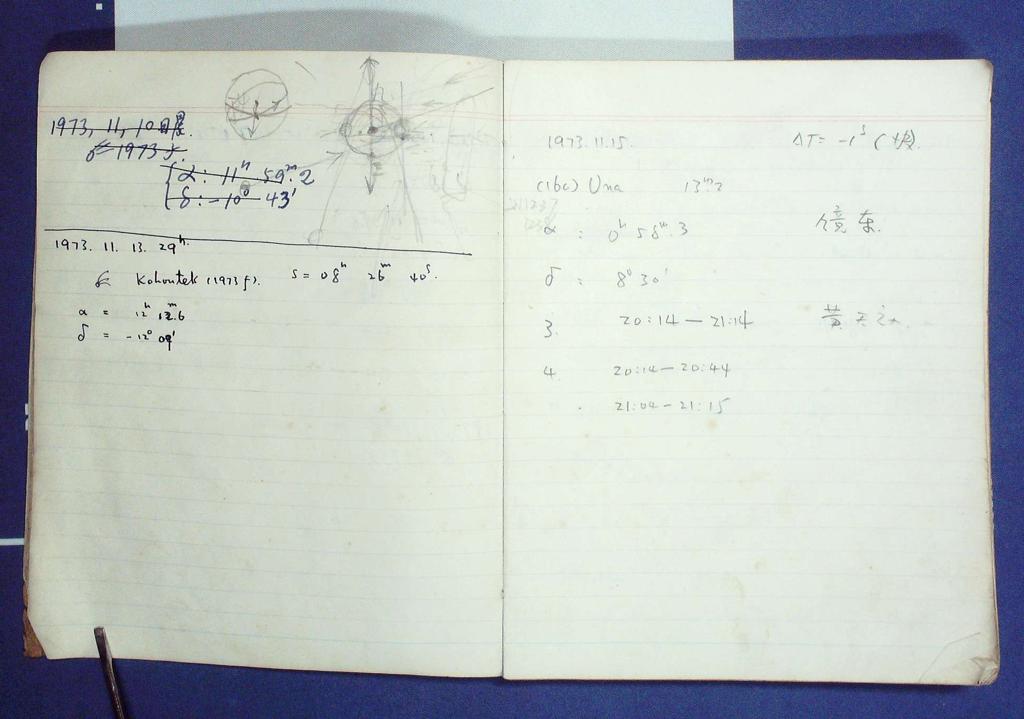 1973, 11, 10
1973 f.
α : 11ʰ 59ᵐ.2
δ : -10° 43'
1973. 11. 13. 29ʰ.
Kohoutek (1973 f). S = 08ʰ 26ᵐ 40ˢ.
α = 12ʰ 12ᵐ.6
δ = -12° 09'
1973.11.15. ΔT = -1ˢ (快).
(160) Una 13ᵐ.2
α : 0ʰ 58ᵐ.3 镜東.
δ : 8° 30'
3. 20:14 — 21:14
4. 20:14 — 20:44
21:04 — 21:15